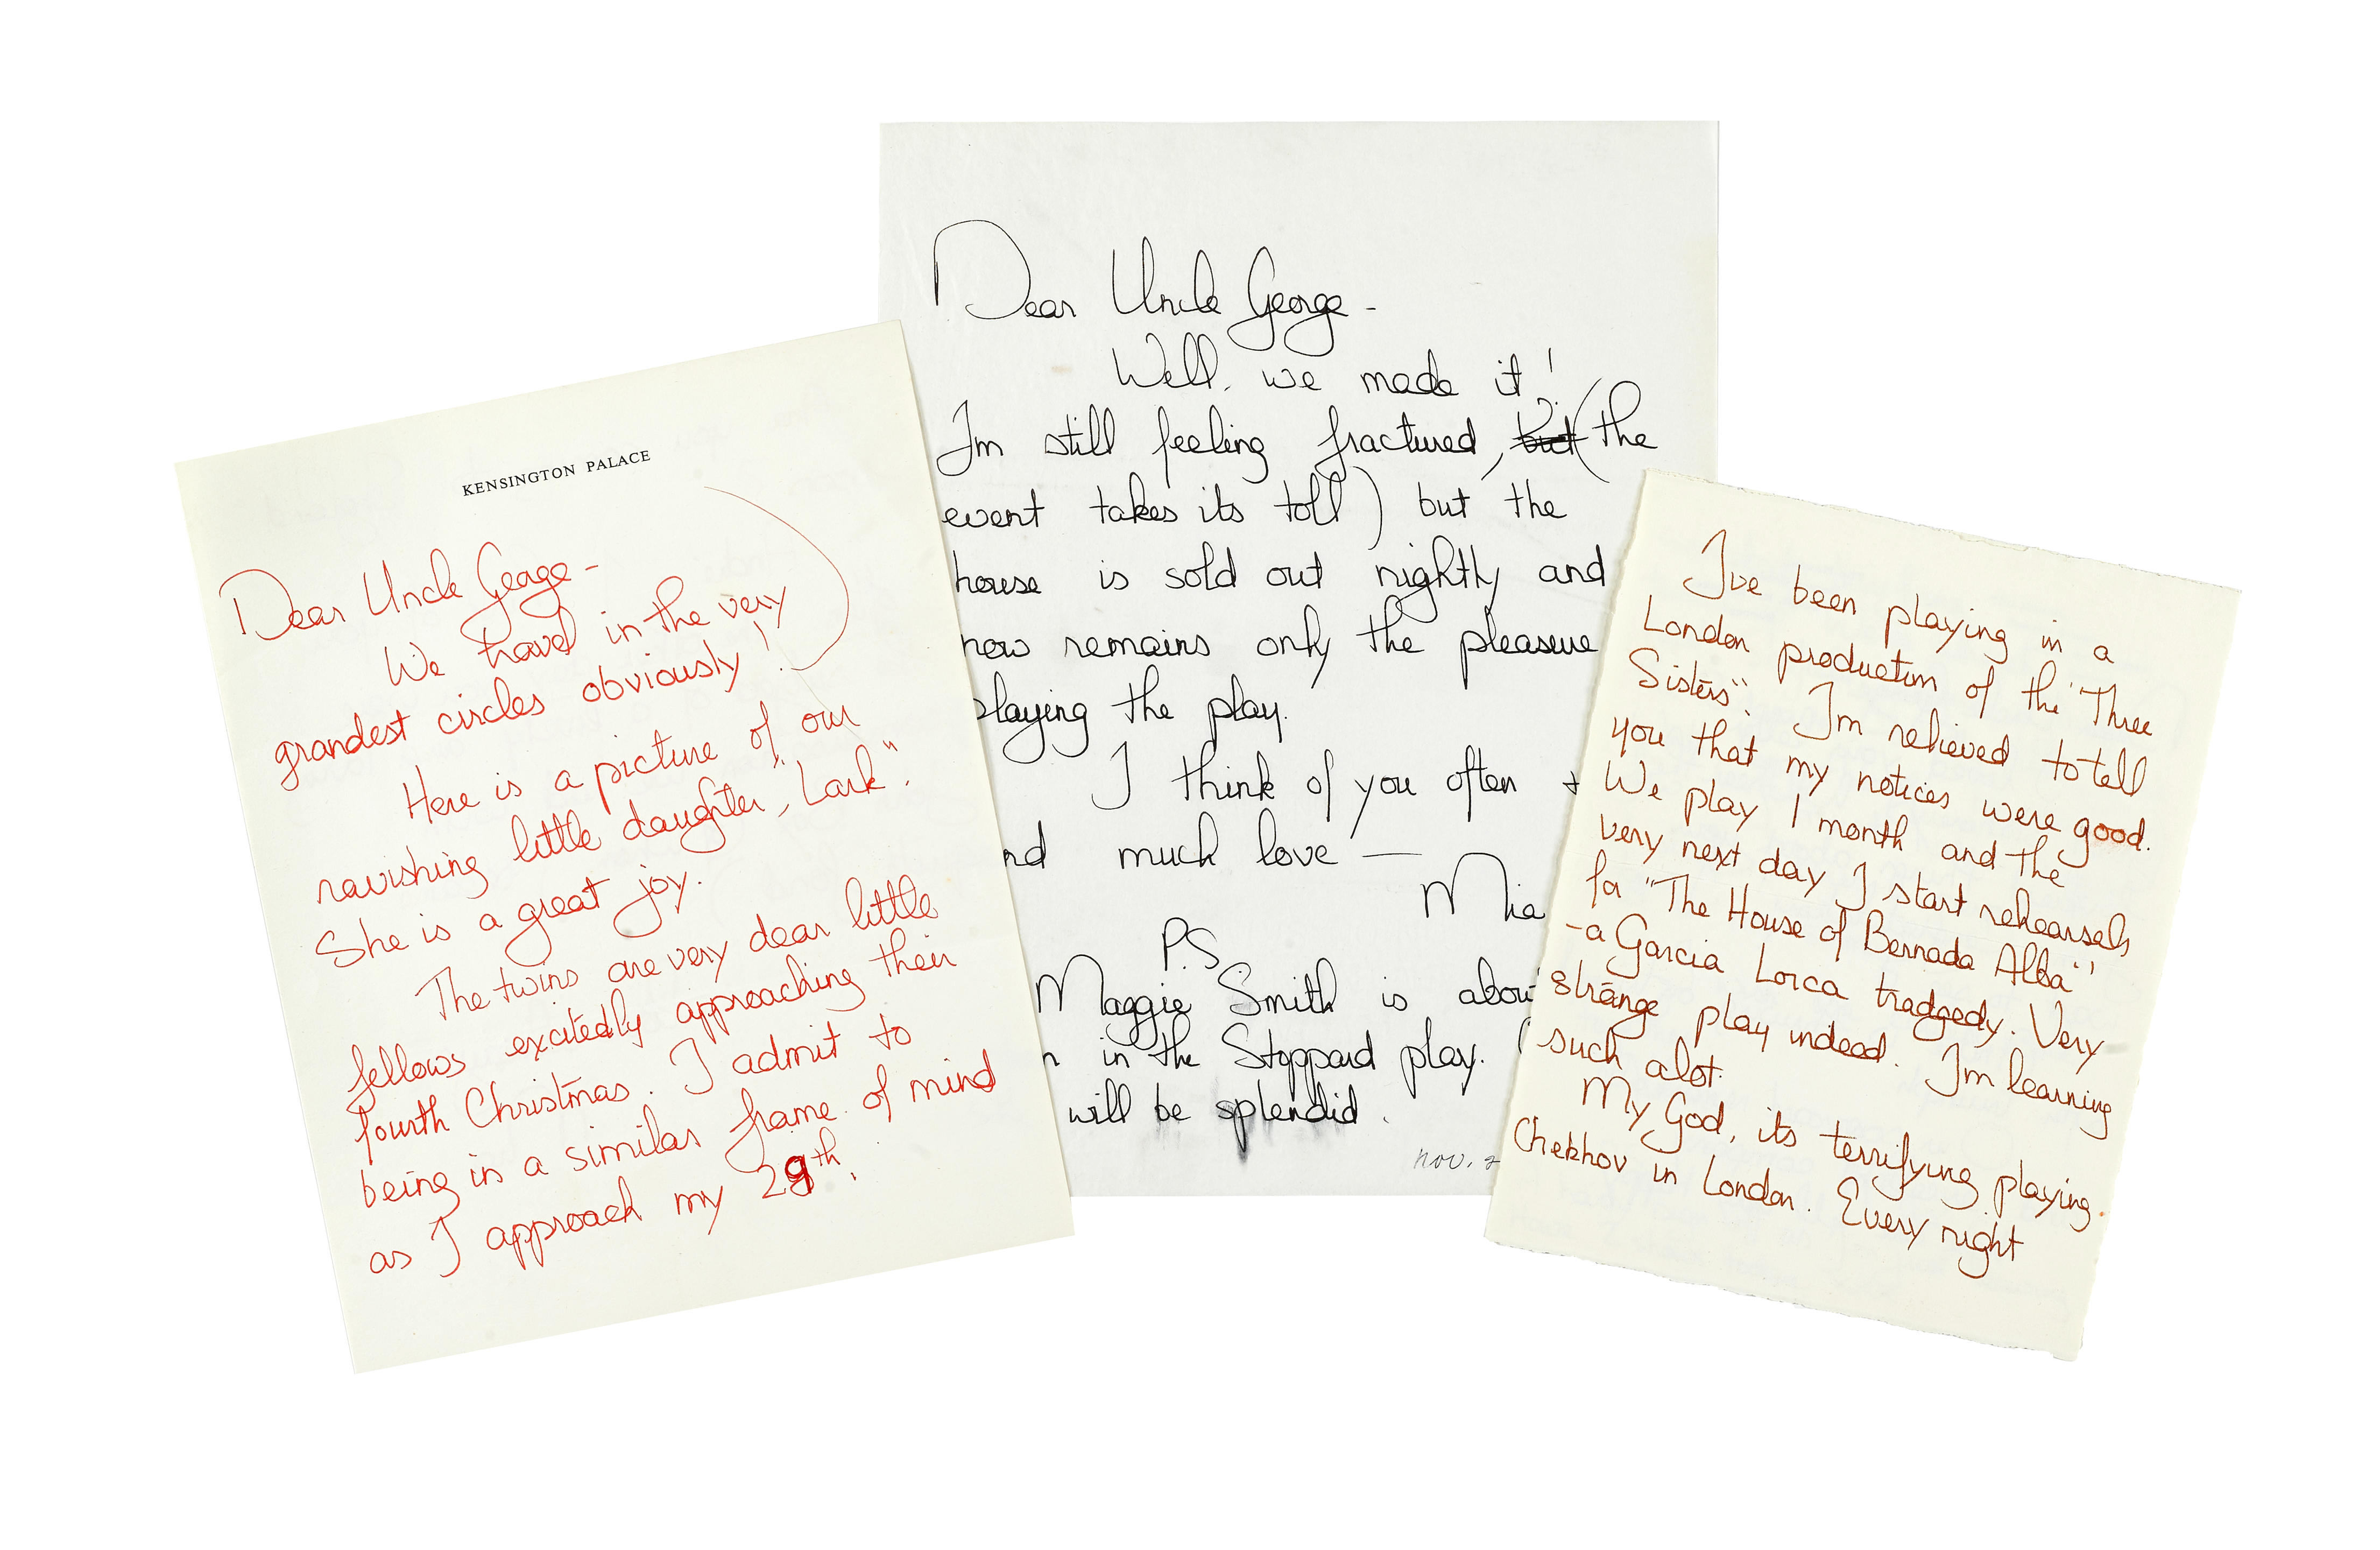 KENSINGTON PALACE
Dear Uncle George -
We travel in the very
grandest circles obviously!
Here is a picture of our
ravishing little daughter, "Lark".
She is a great joy.
The twins are very dear little
fellows excitedly approaching their
fourth Christmas. I admit to
being in a similar frame of mind
as I approach my 29th.
Dear Uncle George -
Well, we made it!
I'm still feeling fractured, but (the
event takes its toll) but the
house is sold out nightly and
now remains only the pleasure
playing the play.
I think of you often +
nd much love —
Mia
P.S
Maggie Smith is abou
n in the Stoppard play. (
will be splendid.
nov. 2
I've been playing in a
London production of the "Three
Sisters". I'm relieved to tell
you that my notices were good.
We play 1 month and the
very next day I start rehearsals
for "The House of Bernada Alba"
- a Garcia Lorca tradgedy. Very
strange play indeed. I'm learning
such alot.
My God, its terrifying playing
Chekhov in London. Every night